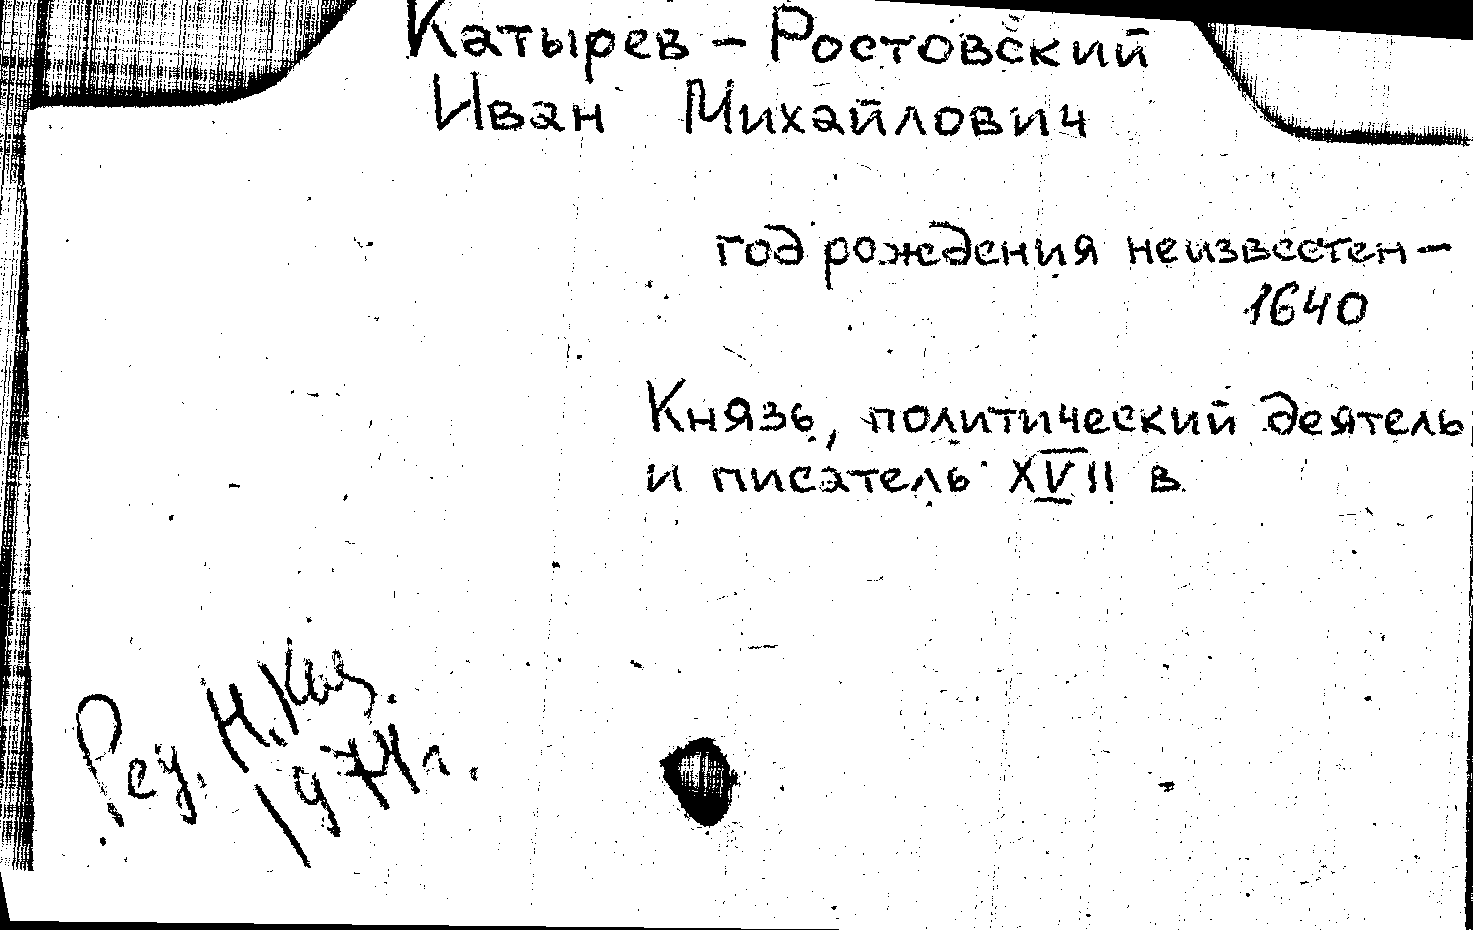 Катырев - Ростовский
Иван Михайлович
год рождения неизвестен -
1640
Князь, политический деятель
и писатель XVII в
Ред. Н.
1974 г.